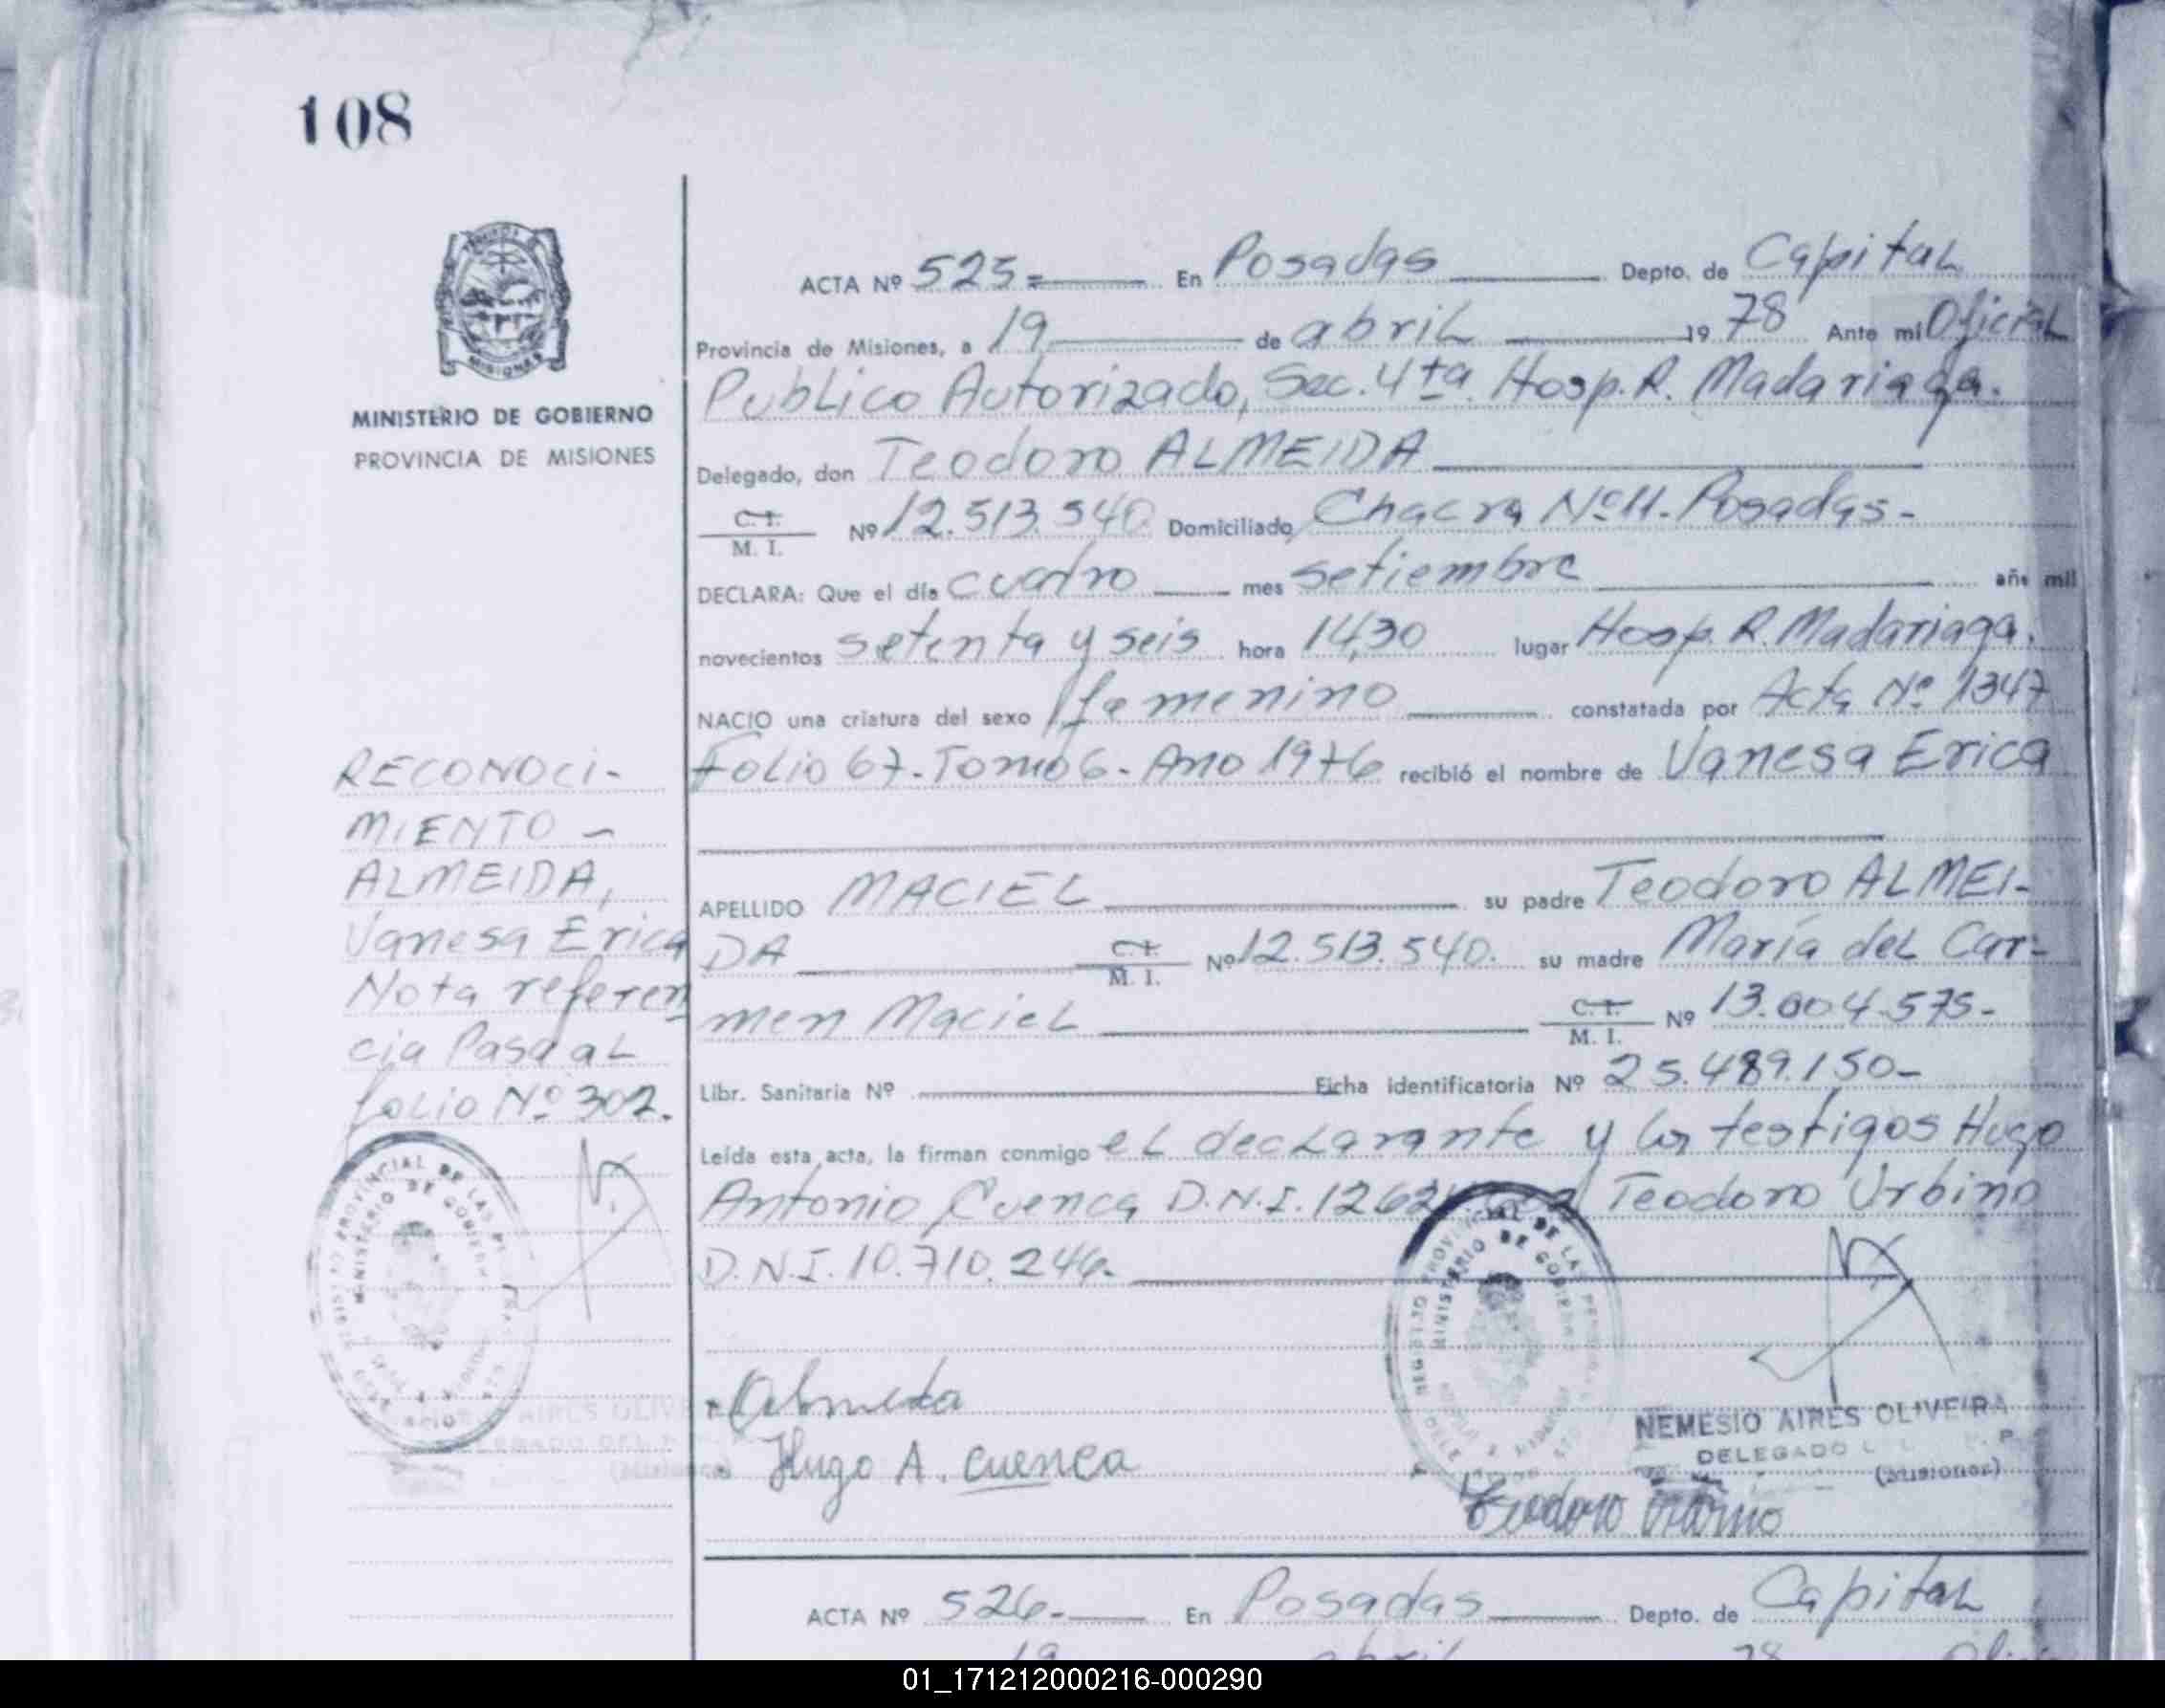 108
MISIONES
MINISTERIO DE GOBIERNO
PROVINCIA DE MISIONES
ACTA Nº 525= En Posadas Depto. de Capital
Provincia de Misiones, a 19 de abril 1978 Ante mi Oficial
Publico Autorizado, Sec. 4ta. Hosp. R. Madariaga.
Delegado, don Teodoro ALMEIDA
C.I.
M. I. Nº 12.513.540 Domiciliado Chacra Nº 11. Posadas-
DECLARA: Que el día cuatro mes setiembre año mil
novecientos setenta y seis hora 14,30 lugar Hosp. R. Madariaga.
NACIO una criatura del sexo femenino constatada por Acta Nº 1347
Folio 67. Tomo 6. Ano 1976 recibió el nombre de Vanesa Erica
APELLIDO MACIEL su padre Teodoro ALMEI-
DA C.I. M. I. Nº 12.513.540. su madre María del Car-
men Maciel C.I. M. I. Nº 13.004.575-
Libr. Sanitaria Nº Ficha identificatoria Nº 25.489.150-
Leída esta acta, la firman conmigo el declarante y los testigos Hugo
Antonio Cuenca D.N.I. Teodoro Urbino
D.N.I. 10.710.246.
RECONOCI-
MIENTO -
ALMEIDA,
Vanesa Erica
Nota referen
cia Pasa al
folio Nº 302.
Almeida
Hugo A. Cuenca
NEMESIO AIRES OLIVEIRA
DELEGADO
(Misiones)
Teodoro Urbino
ACTA Nº 526- En Posadas Depto. de Capital
19 abril 78
01_171212000216-000290